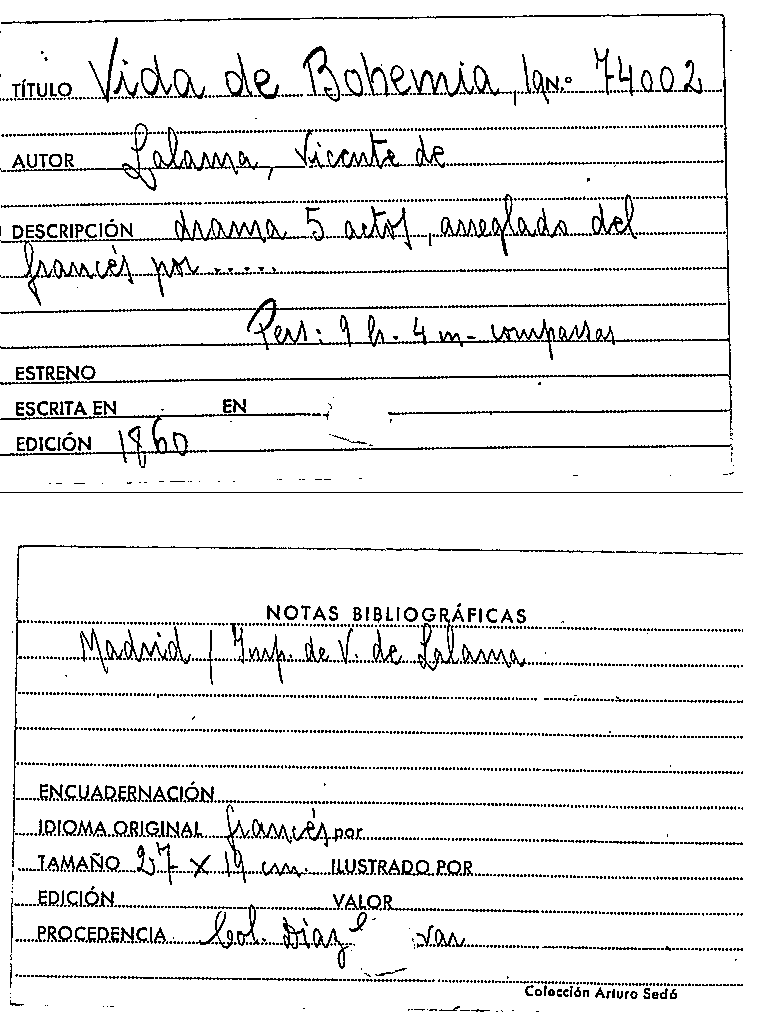 TÍTULO Vida de Bohemia, 74002
AUTOR Lalama, Vicente de
DESCRIPCIÓN drama 5 actos, arreglado del
francés por .....
Pers: 9 h. 4 m- comparsas
ESTRENO
ESCRITA EN EN
EDICIÓN 1860
NOTAS BIBLIOGRÁFICAS
Madrid / Imp. de V. de Lalama
ENCUADERNACIÓN
IDIOMA ORIGINAL francés por
TAMAÑO 27 x 19 cm. ILUSTRADO POR
EDICIÓN VALOR
PROCEDENCIA Col. Díaz
Colección Arturo Sedó